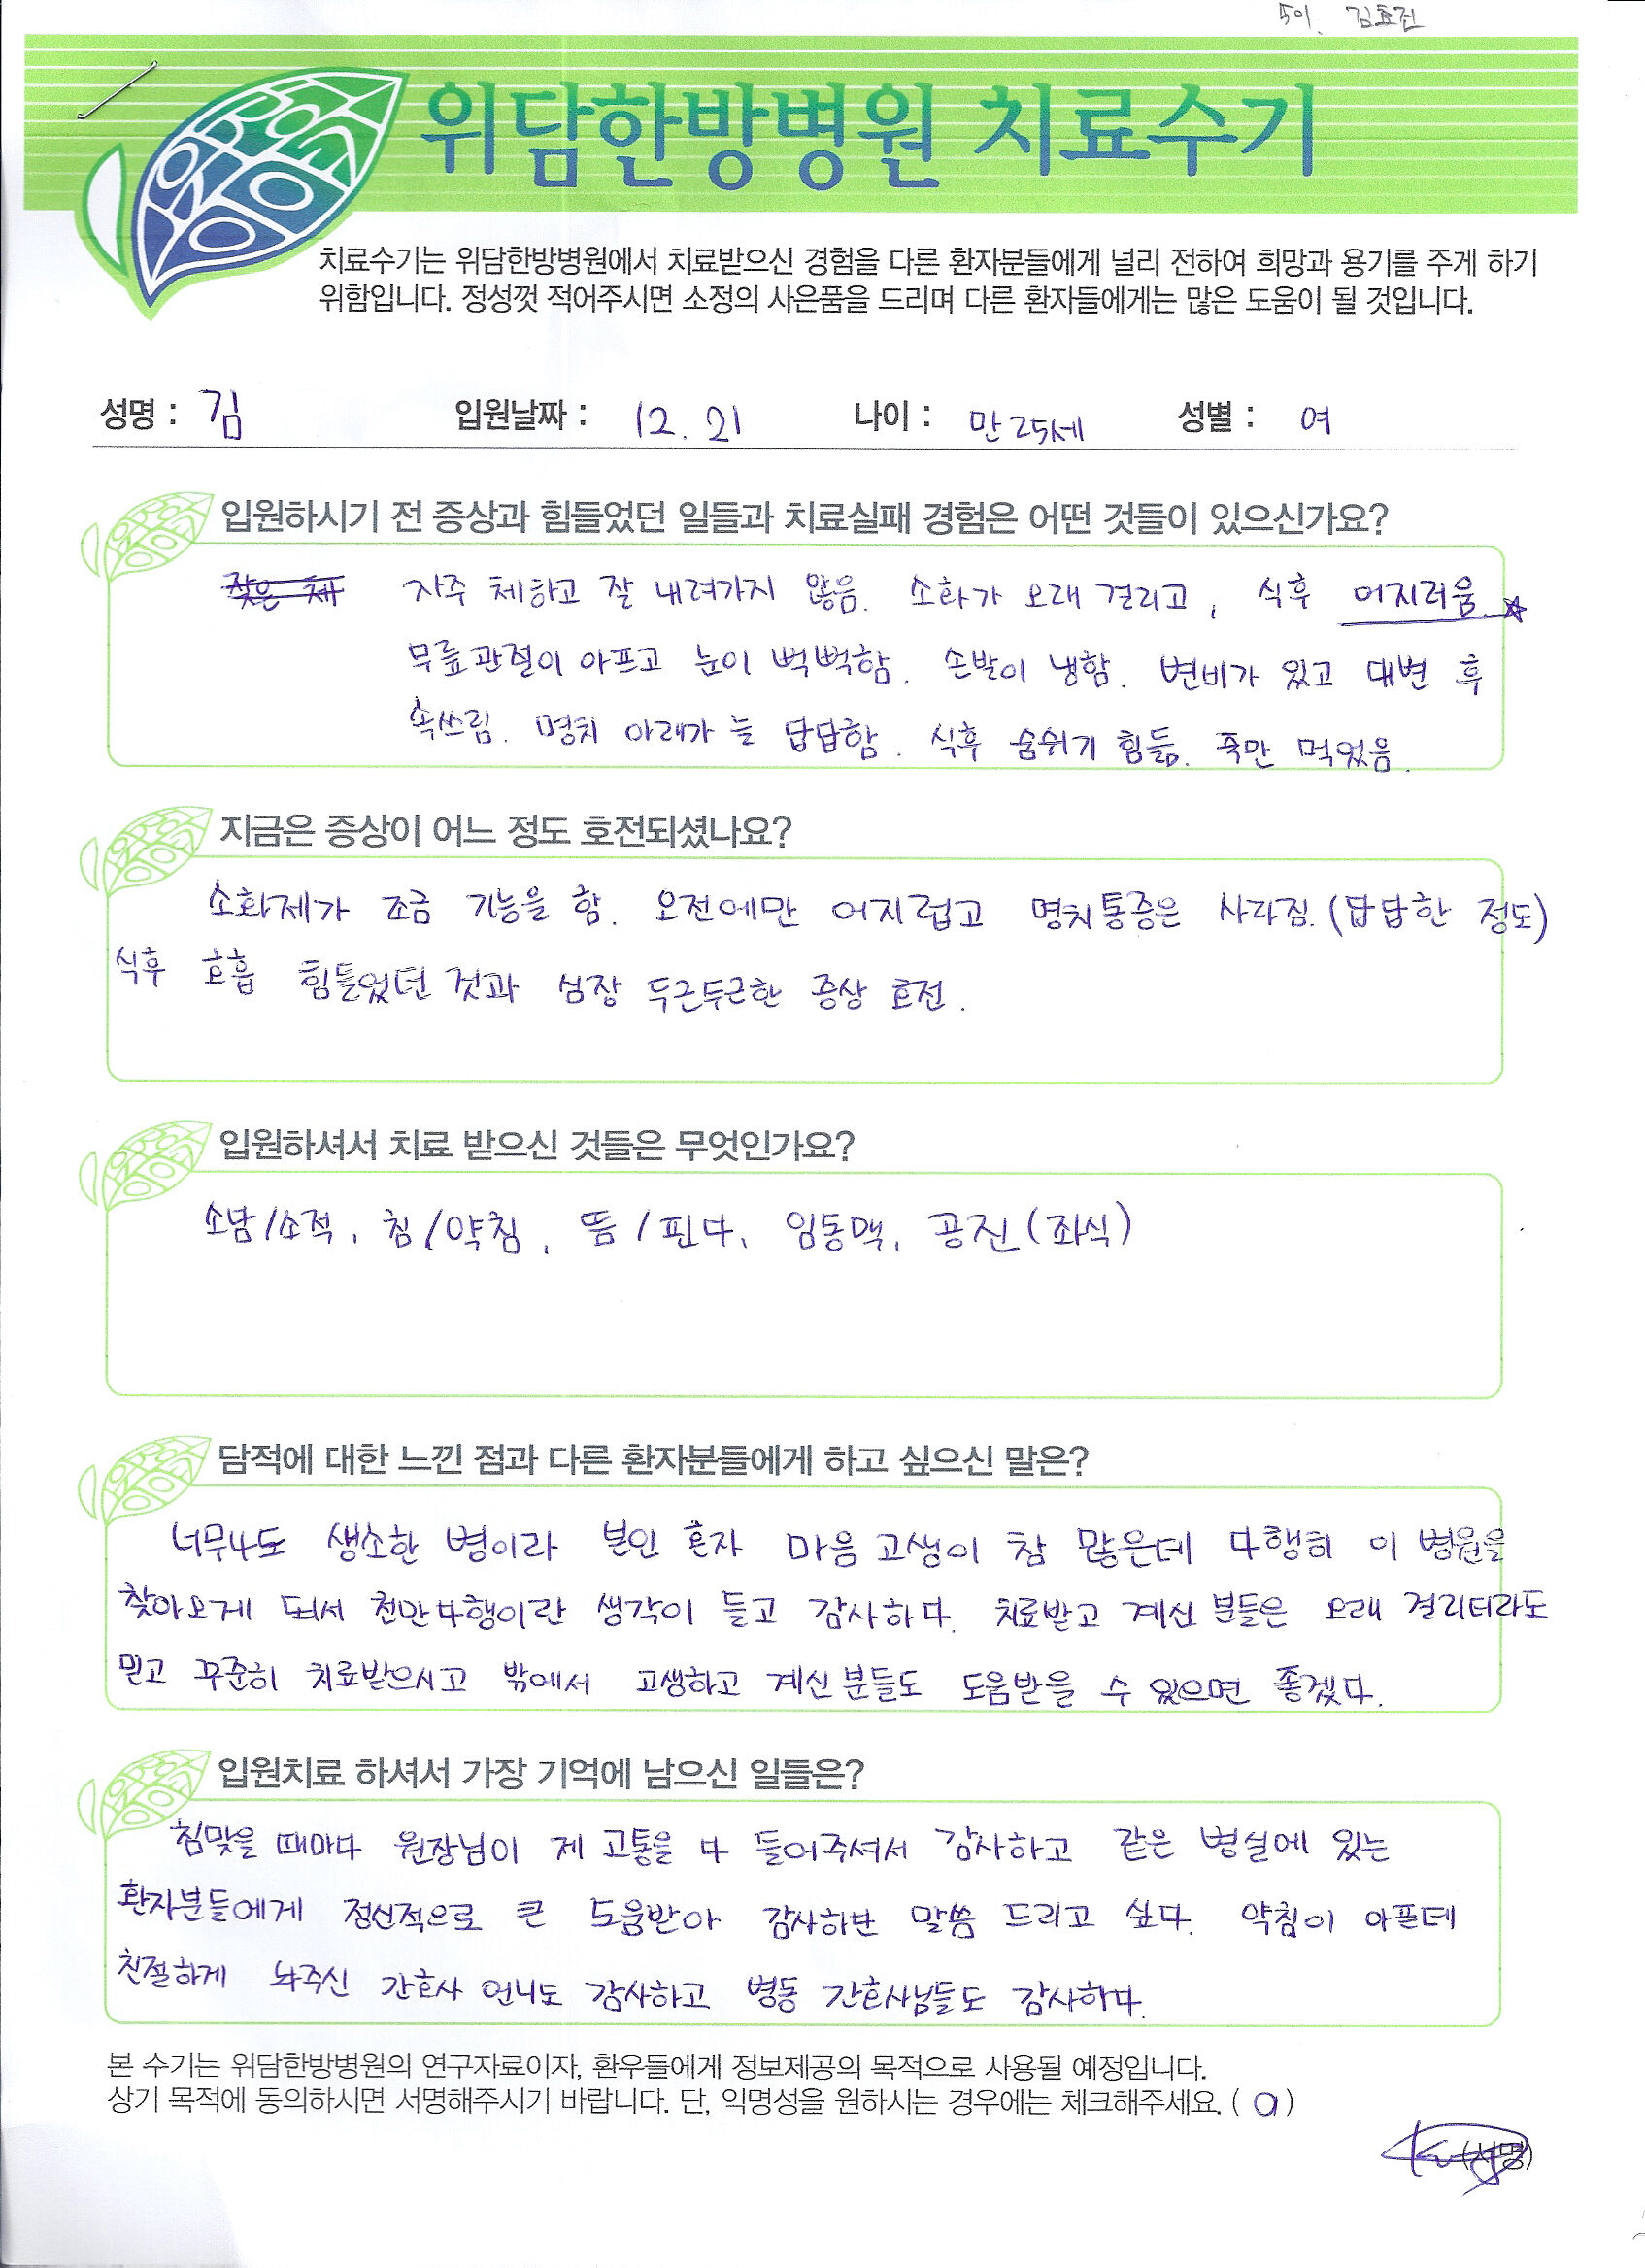 501. 김효진
위담한방병원 치료수기
치료수기는 위담한방병원에서 치료받으신 경험을 다른 환자분들에게 널리 전하여 희망과 용기를 주게 하기
위함입니다. 정성껏 적어주시면 소정의 사은품을 드리며 다른 환자들에게는 많은 도움이 될 것입니다.
성명 : 김 입원날짜 : 12. 21 나이 : 만 25세 성별 : 여
입원하시기 전 증상과 힘들었던 일들과 치료실패 경험은 어떤 것들이 있으신가요?
잦은 체 자주 체하고 잘 내려가지 않음. 소화가 오래 걸리고, 식후 어지러움 ☆
무릎관절이 아프고 눈이 뻑뻑함. 손발이 냉함. 변비가 있고 대변 후
속쓰림. 명치 아래가 늘 답답함. 식후 숨쉬기 힘듦. 죽만 먹었음.
지금은 증상이 어느 정도 호전되셨나요?
소화제가 조금 기능을 함. 오전에만 어지럽고 명치통증은 사라짐. (답답한 정도)
식후 호흡 힘들었던 것과 심장 두근두근한 증상 호전.
입원하셔서 치료 받으신 것들은 무엇인가요?
소남/소적, 침/약침, 뜸/핀다, 임동맥, 공진(좌식)
담적에 대한 느낀 점과 다른 환자분들에게 하고 싶으신 말은?
너무나도 생소한 병이라 본인 혼자 마음 고생이 참 많은데 다행히 이 병원을
찾아오게 되서 천만다행이란 생각이 들고 감사하다. 치료받고 계신 분들은 오래 걸리더라도
믿고 꾸준히 치료받으시고 밖에서 고생하고 계신 분들도 도움받을 수 있으면 좋겠다.
입원치료 하셔서 가장 기억에 남으신 일들은?
침맞을 때마다 원장님이 제 고통을 다 들어주셔서 감사하고 같은 병실에 있는
환자분들에게 정신적으로 큰 도움받아 감사하단 말씀 드리고 싶다. 약침이 아플데
친절하게 놔주신 간호사 언니도 감사하고 병동 간호사님들도 감사하다.
본 수기는 위담한방병원의 연구자료이자, 환우들에게 정보제공의 목적으로 사용될 예정입니다.
상기 목적에 동의하시면 서명해주시기 바랍니다. 단, 익명성을 원하시는 경우에는 체크해주세요. ( O )
(서명)